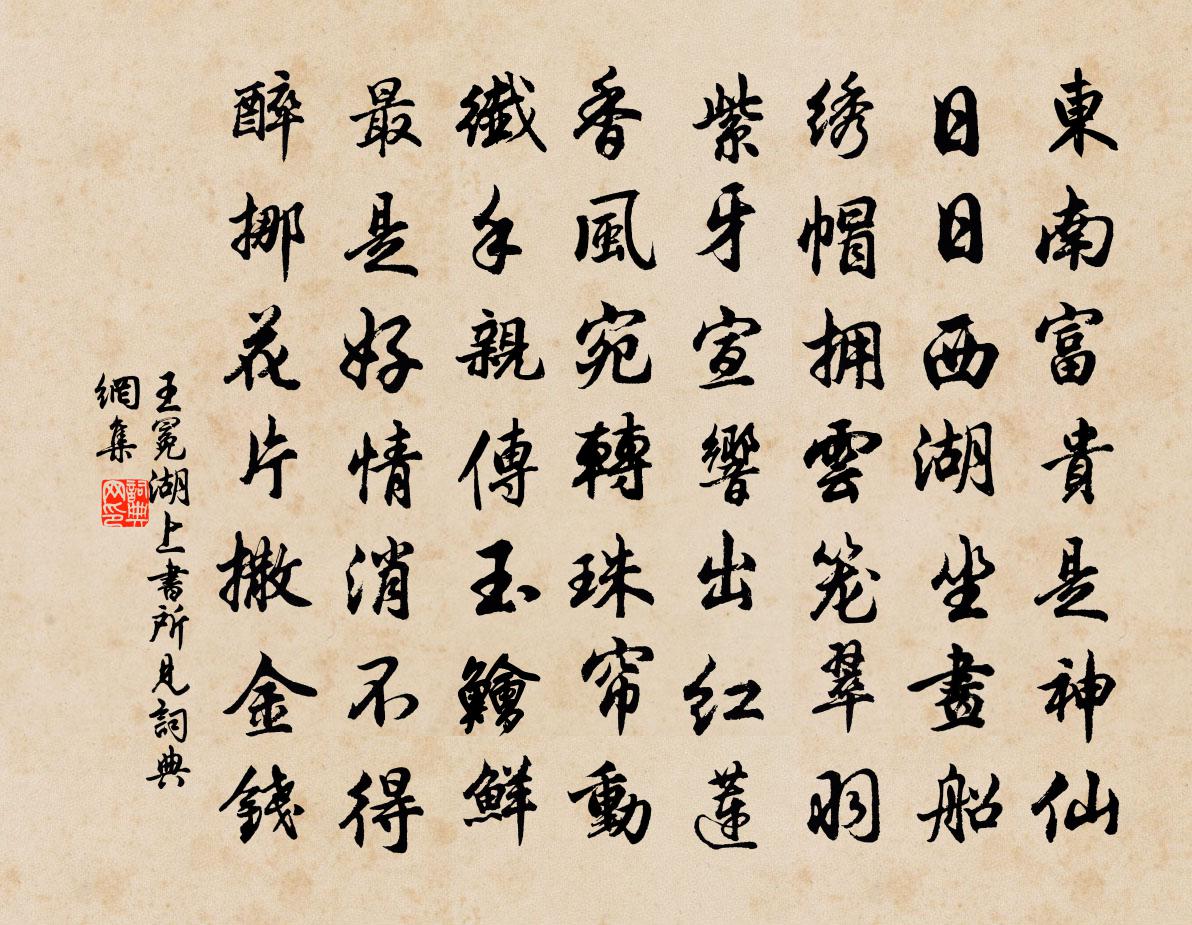 東南富貴是神仙
日日西湖坐畫船
綉帽拥雲笼翠羽
紫牙宣響出红蓮
香風宛轉珠帘動
纖手親傳玉鱠鮮
最是好情消不得
醉挪花片撒金錢
王冕湖上書所見詞典
網集
詞典
网印